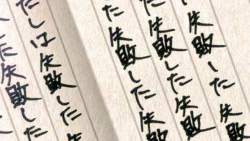 した失敗
失敗した失敗
失敗した失敗
た失敗した
た失敗した
は失敗した
した失敗した